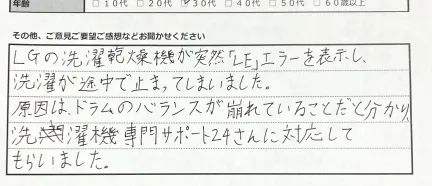 年齢 □10代 □20代 ☑30代 □40代 □50代 □60歳以上
その他、ご意見ご要望ご感想などお聞かせください
LGの洗濯乾燥機が突然「LE」エラーを表示し、
洗濯が途中で止まってしまいました。
原因は、ドラムのバランスが崩れていることだと分かり、
洗濯機専門サポート24さんに対応して
もらいました。